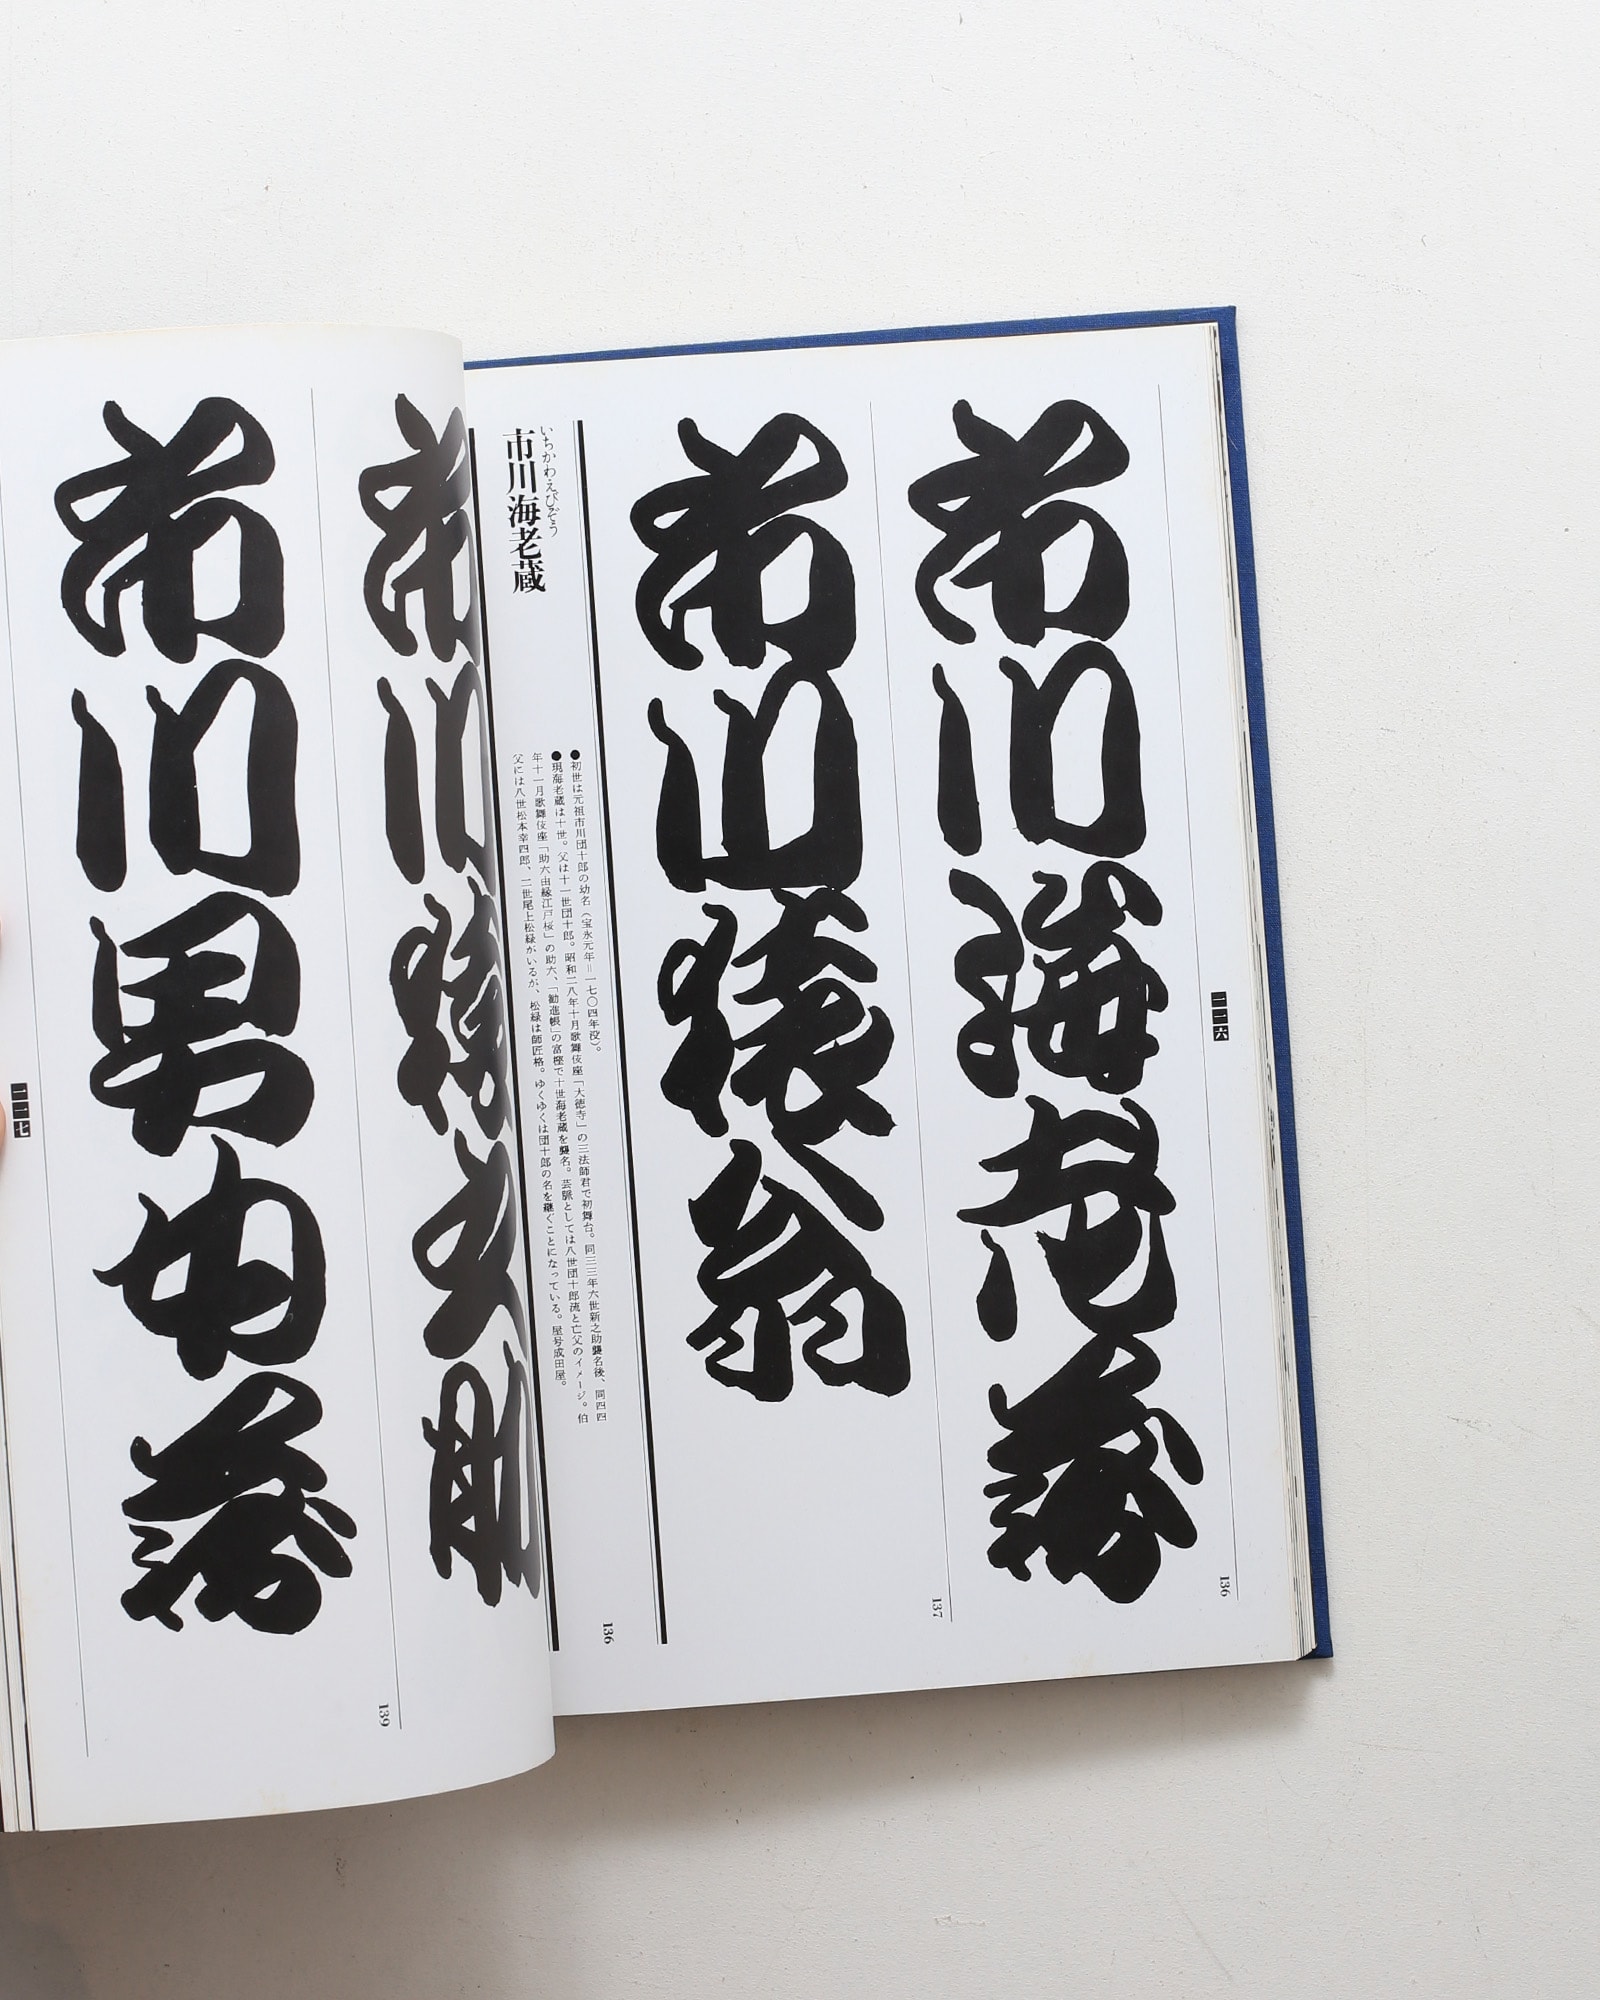 一一六
市川海老蔵
136
市川猿翁
137
いちかわえびぞう
市川海老蔵
●初世は元祖市川団十郎の幼名（宝永元年＝一七〇四年没）。
●現海老蔵は十世。父は十一世団十郎。昭和二八年十月歌舞伎座「大徳寺」の三法師君で初舞台。同三三年六世新之助襲名後、同四四
年十一月歌舞伎座「助六由縁江戸桜」の助六、「勧進帳」の富樫で十世海老蔵を襲名。芸脈としては八世団十郎流と亡父のイメージ。伯
父には八世松本幸四郎、二世尾上松緑がいるが、松緑は師匠格。ゆくゆくは団十郎の名を継ぐことになっている。屋号成田屋。
136
市川猿之助
139
市川男女蔵
一一七